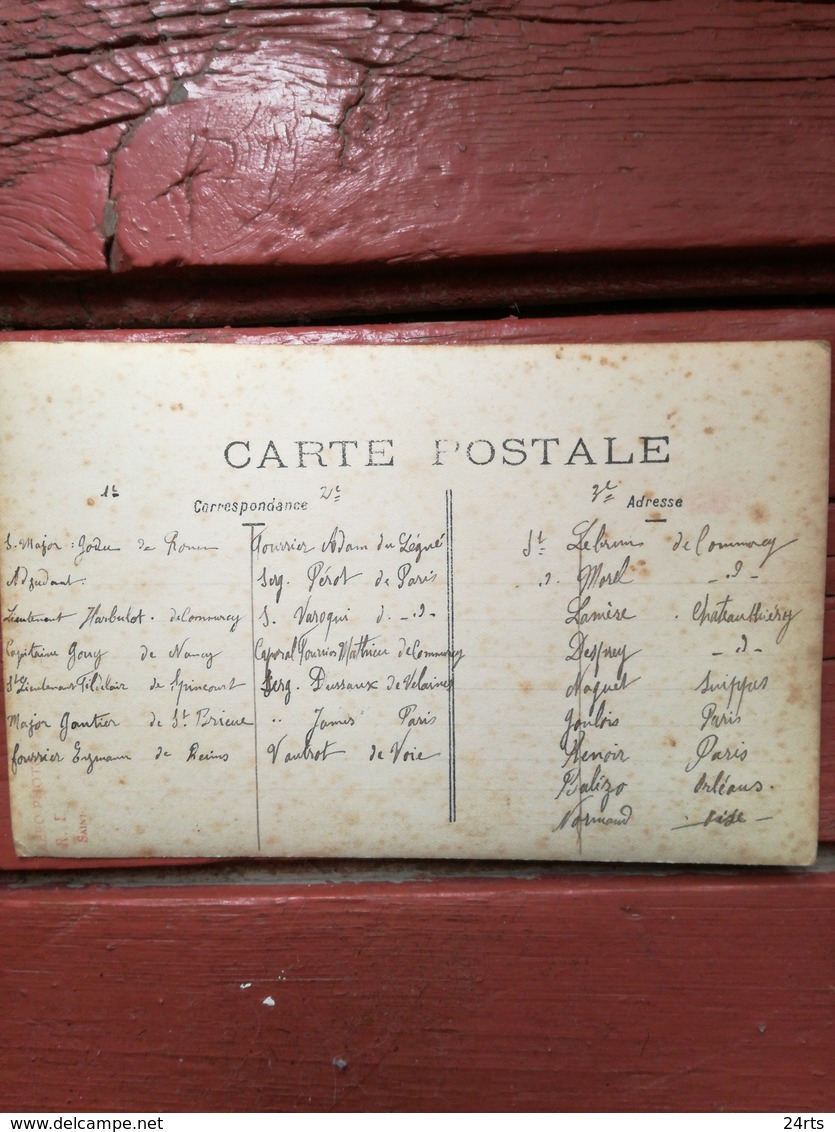 CARTE POSTALE
Correspondance
Adresse
1e
S. Major : de Rouen
Adjudant.
Lieutenant Harbulot. de Commercy
Capitaine Gouy de Nancy
St Lieutenant de Spincourt
Major Gautier de St Brieuc
fourrier Eymann de Reims
2e
Fourrier Adam du Légué
Serg. Pérot de Paris
S. Varoqui d. -d-
Caporal Fourrier Mathieu de Commercy
Serg. Dussaux de Velaines
" James Paris
Vautrot de Voie
3e
St Lebrun de Commercy
d. Morel -d-
Lamèse . Chateau Thiéry
Desprey -d-
Naquet Suippes
Goulois Paris
Renoir Paris
Balizo Orléans.
Normand - Oise -
PHOT
R.
SAINT
24rts